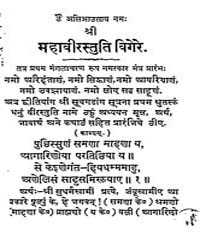 ॐ
श्री
महावीरस्तुति विगेरे.
तत्र प्रथम मंगलाचरण रूप नमस्कार मंत्र प्रारंभः
नमो अरिहंताणं. नमो सिद्धाणं. नमो आयरियाणं.
नमो उवज्झायाणं. नमो लोए सव्व साहूणं.
अत्र श्री सूयगडांग सूत्रना प्रथम श्रुतस्कं
धनुं वीरस्तुति नामे छठ्ठुं अध्ययन मूल, अर्थ,
भावार्थ अने सहित प्रारंभिये छीए.
(काव्यम्.)
पुच्छिस्सुणं समणा माहणा य,
अगारिणोया परतित्थिया य ॥
से केइणेगंत-हियधम्ममाहु,
अणेलिसं साहुसमिक्खयाए ॥ १ ॥
अर्थः-श्री सुधर्मस्वामी प्रत्ये, जंबूस्वामीए आ
प्रकारे पुछ्युं के, हे भगवन्! (समणा के०) श्रमणो
(माहणा के०) ब्राह्मणो (य के०) वली (अगारिणो